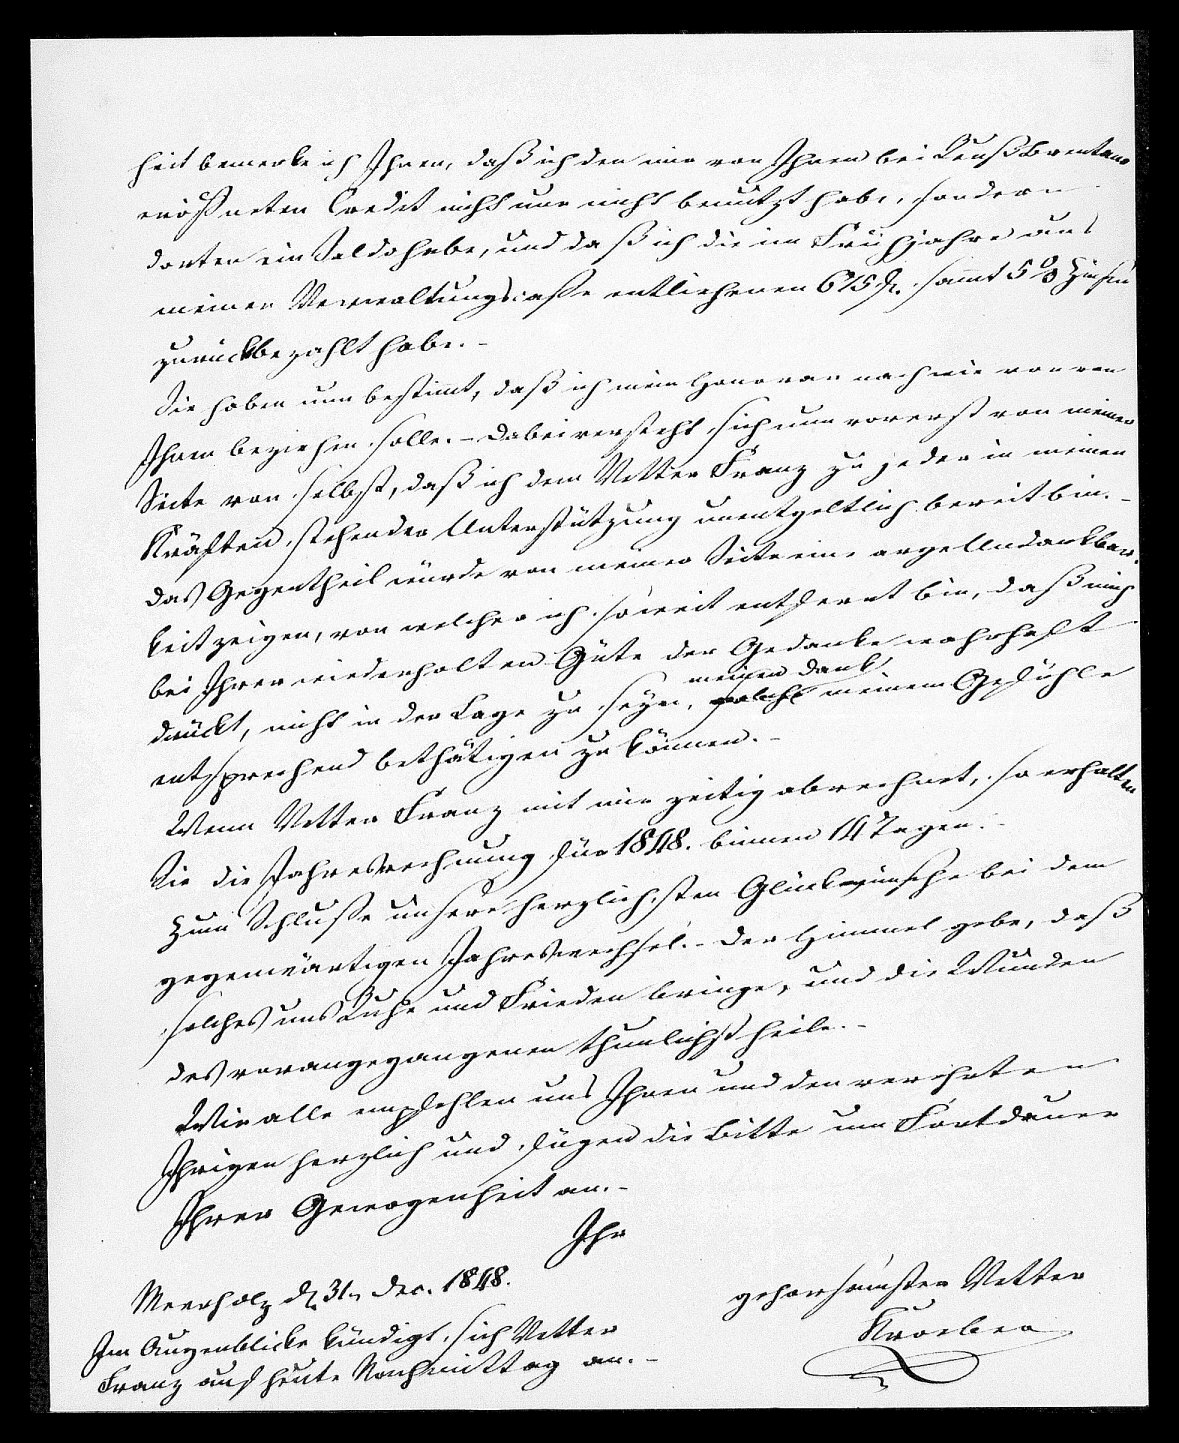 heit bemerke ich Ihnen, daß ich den mir von Ihnen bei Reuß Brentano
eröffneten Credit nicht nur nicht benützt habe, sondern
dorten ein Saldo habe, und daß ich die im Frühjahre aus
meiner Verwaltungscasse entliehenen 675 fl. sammt 5% Zinsen
zurückbezahlt habe. -
Sie haben nun bestimmt, daß ich mein Honorar nach wie vor von
Ihnen beziehen solle. - Dabei versteht sich nun vorerst von meiner
Seite von selbst, daß ich dem Vetter Franz zu jeder in meinen
Kräften stehender Unterstützung unentgeltlich bereit bin. -
das Gegentheil würde von meiner Seite eine arge Undankbar-
keit zeigen, von welcher ich soweit entfernt bin, daß mich
bei Ihrer wiederholten Güte der Gedanke wahrhaft
drückt, nicht in der Lage zu seyn, meinen Dank meinem Gefühle
entsprechend bethätigen zu können. -
Wenn Vetter Franz mit mir zeitig abrechnet, so erhalten
Sie die Jahresrechnung für 1848. binnen 14 Tagen. -
Zum Schluße unsere herzlichsten Glückwünsche bei dem
gegenwärtigen Jahreswechsel. - Der Himmel gebe, daß
solches uns Ruhe und Frieden bringe, und die Wunden
des vorangegangenen thunlichst heile. -
Wir alle empfehlen uns Ihnen und den verehrten
Ihrigen herzlich und fügen die Bitte um Fortdauer
Ihrer Gewogenheit an. -
Ihr
gehorsamster Vetter
Kroeber
Meerholz d. 31n Dec. 1848.
Im Augenblicke kündigt sich Vetter
Franz auf heute Nachmittag an. -